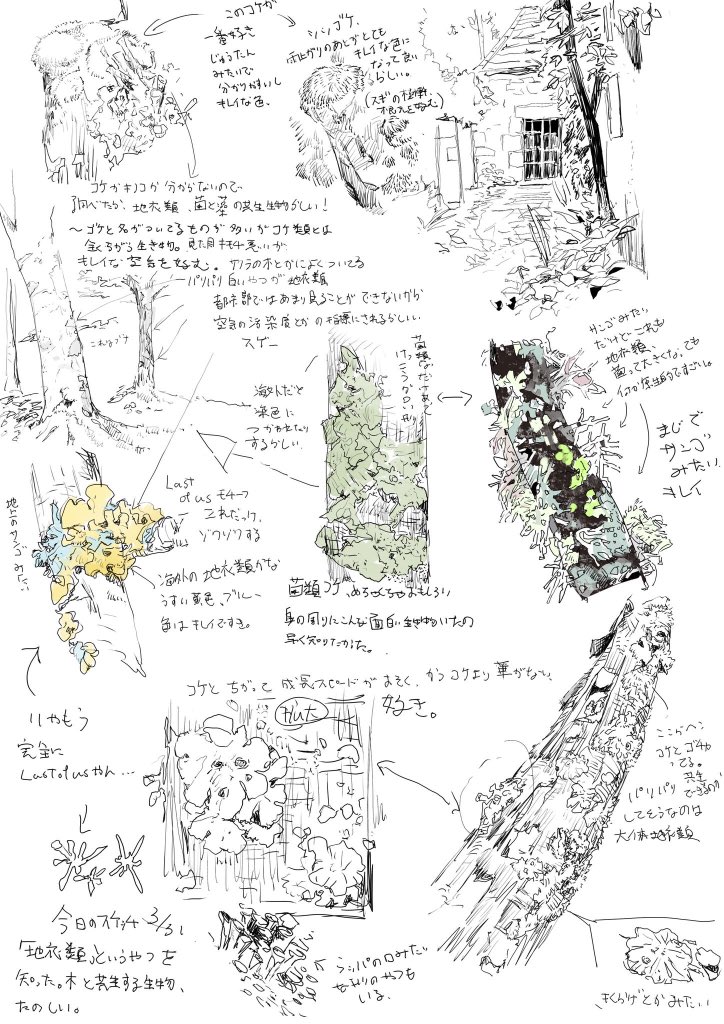 このコケが
一番好き
じゅうたん
みたいで
分かりやすいし
キレイな色、
シシゴケ、
雨上がりのあとがとても
キレイな色に
なって良い
らしい。
(スギの植林、
根元を好む)
コケかキノコか分からないので
調べたら、地衣類、菌と藻の共生生物らしい!
〜ゴケと名がついてるものが多いがコケ類とは
全くちがう生き物。見た目
キレイな空気を好む。
パリパリ白いやつが地衣類
都市部ではあまり見ることができないから
空気の汚染度とかの指標にされるらしい
スゲー
これもブナ
海外だと
染色に
つかわれたり
するらしい。
菌類なだけあって
サンゴみたい
だけどこれも
地衣類、
まじで
サンゴ
みたい、
キレイ
地上のサンゴみたい
Last
of us モチーフ
これだっけ、
ゾワゾワする
海外の地衣類かな
うすい黄色、ブルー
色はキレイですき。
菌類、コケ、めちゃくちゃおもしろい
身の周りにこんな面白い生き物いたの
早く知りたかった。
コケとちがって成長スピードがおそく、かつコケより華がない、
好き。
いやもう
完全に
Last of usやん…
拡大
ここらへん
コケとゴチャ
ってる。
共生
できるのか
パリパリ
してそうなのは
大体地衣類
今日のスケッチ 3/31
「地衣類」というやつを
知った。木と共生する生物、
たのしい。
ラッパの口みたいな
形のやつも
いる、
きくらげとかみたい